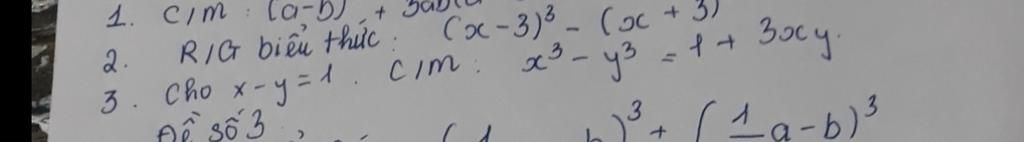 1. C/M : (a-b) + 3ab
2. R/G biểu thức : (x-3)³ - (x + 3)
3. Cho x-y=1. C/M : x³ - y³ = 1 + 3xy.
Đề số 3
)³ + ( 1 a-b)³